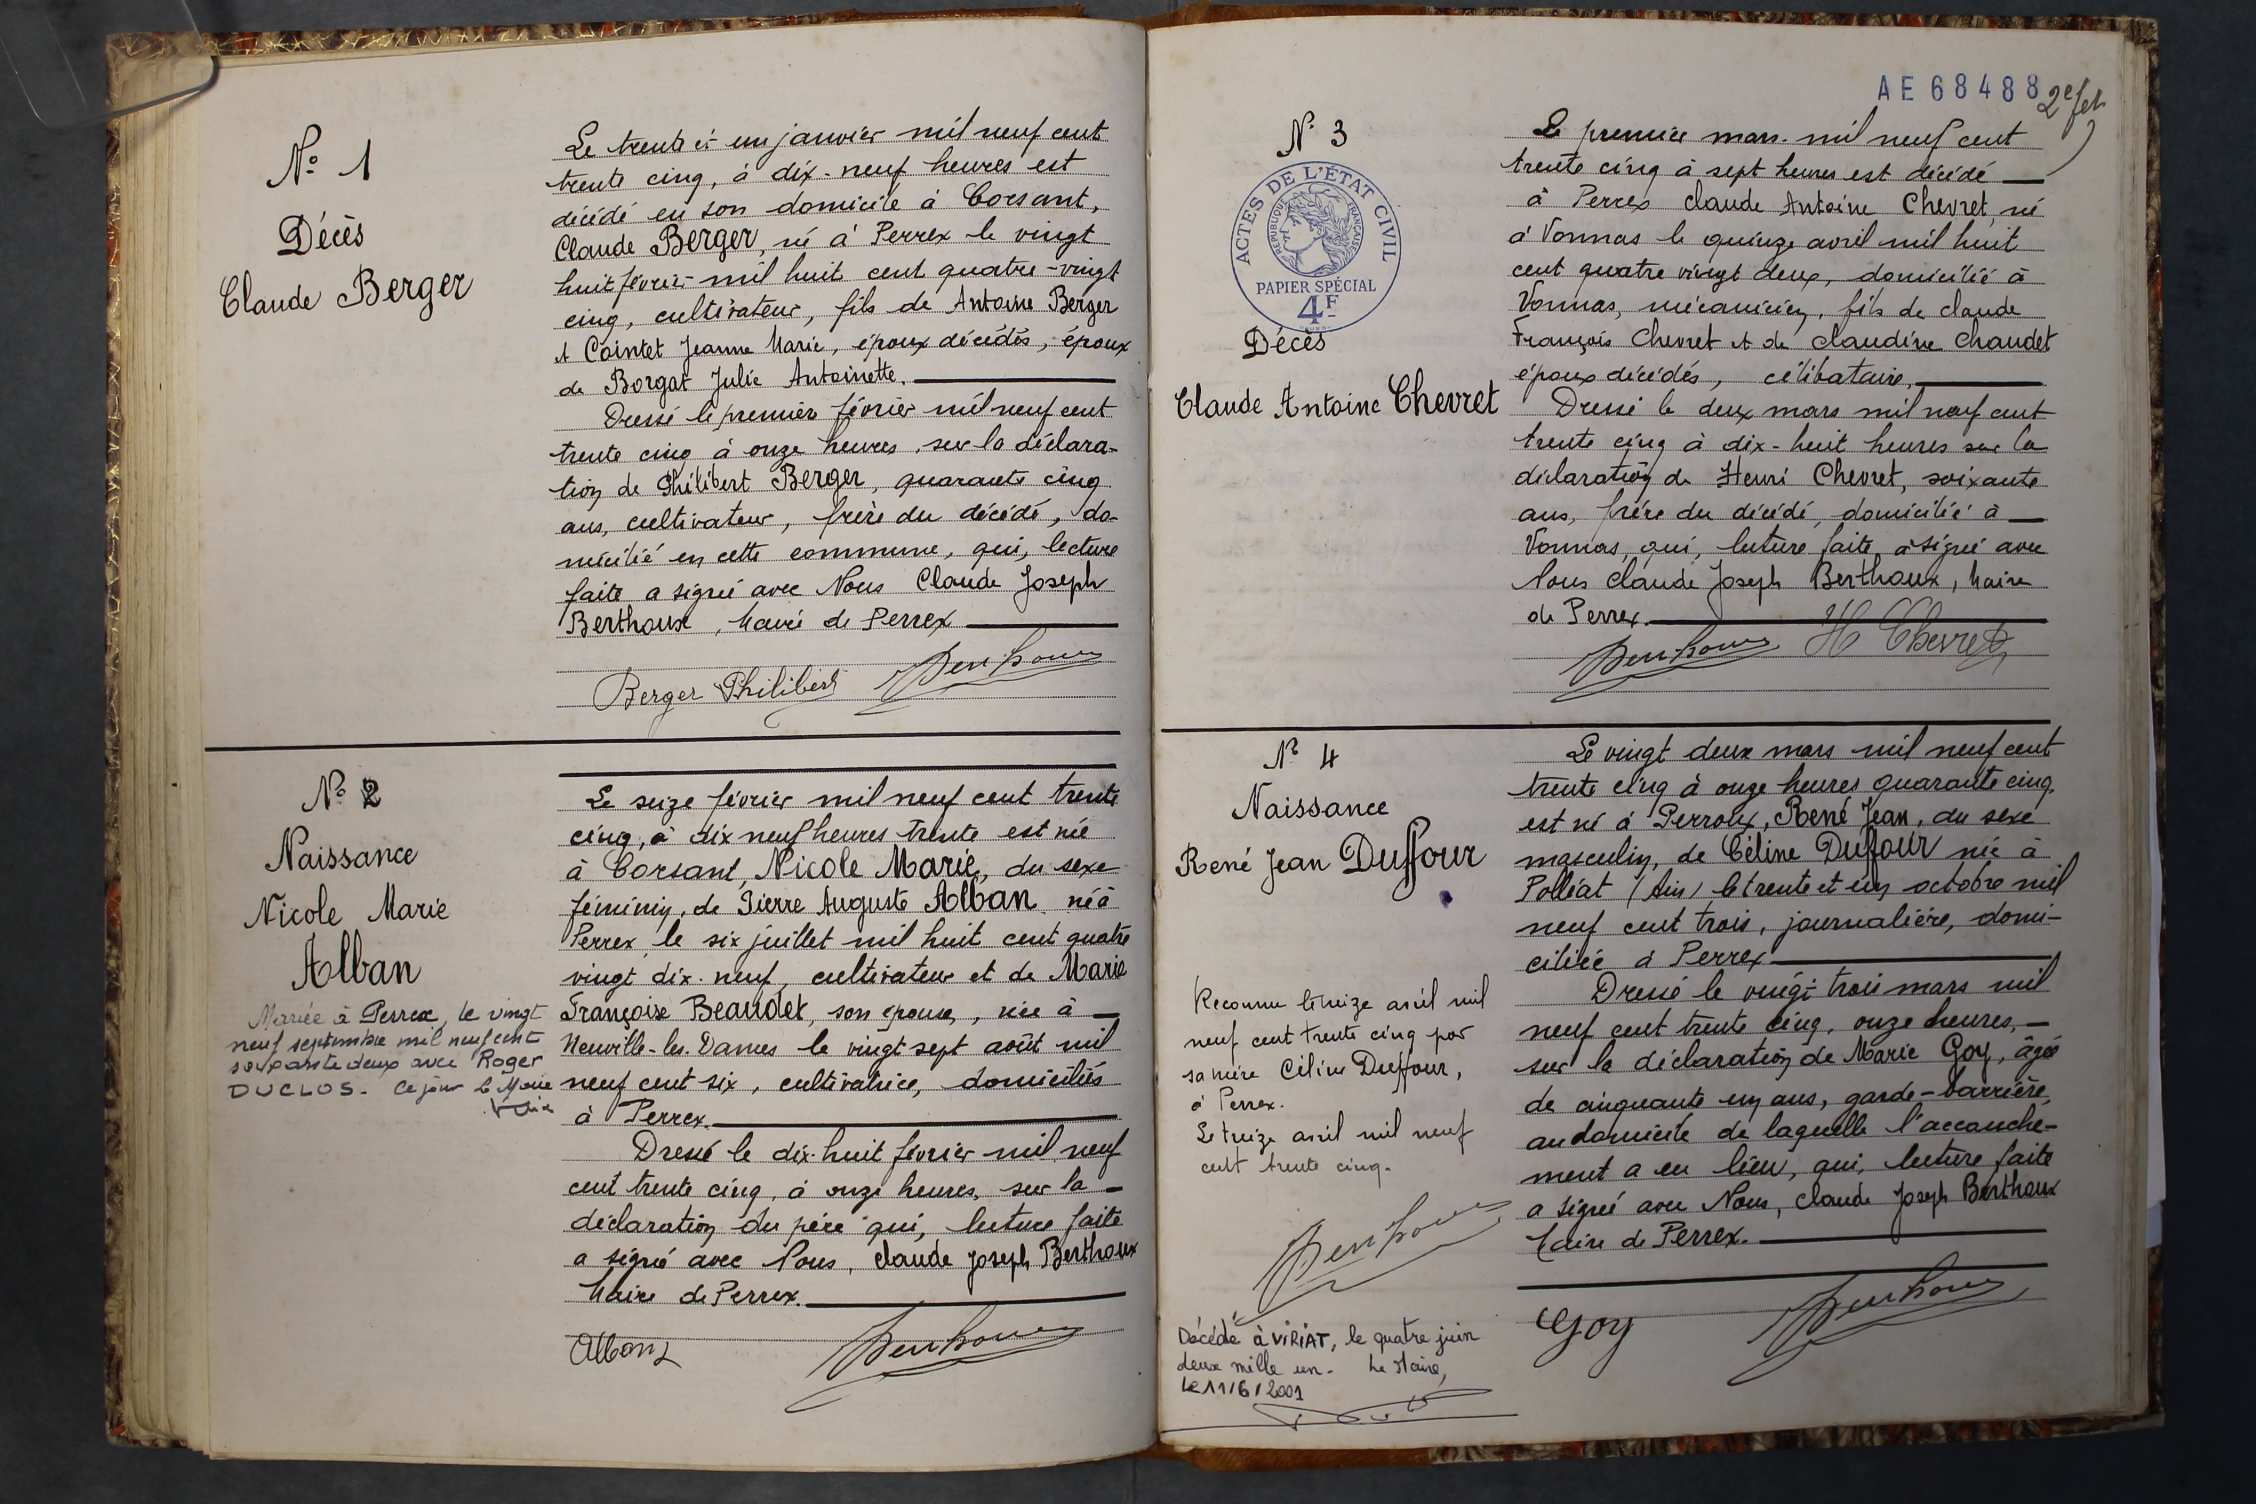 N° 1
Décès
Claude Berger
Le trente et un janvier mil neuf cent
trente cinq, à dix-neuf heures est
décédé en son domicile à Corsant,
Claude Berger, né à Perrex le vingt
huit février mil huit cent quatre-vingt
cinq, cultivateur, fils de Antoine Berger
et Cointet Jeanne Marie, époux décédés, époux
de Borgat Julie Antoinette.
Dressé le premier février mil neuf cent
trente cinq à onze heures, sur la déclara-
tion de Philibert Berger, quarante cinq
ans, cultivateur, frère du décédé, do-
micilié en cette commune, qui, lecture
faite a signé avec Nous Claude Joseph
Berthoux, Maire de Perrex
Berger Philibert Berthoux
N° 2
Naissance
Nicole Marie
Alban
Mariée à Perrex, le vingt
neuf septembre mil neuf cent
soixante deux avec Roger
DUCLOS. Ce jour Le Maire
Le seize février mil neuf cent trente
cinq, à dix neuf heures trente est née
à Corsant, Nicole Marie, du sexe
féminin, de Pierre Auguste Alban né à
Perrex le six juillet mil huit cent quatre
vingt dix-neuf, cultivateur et de Marie
Françoise Beaudet, son épouse, née à
Neuville-les-Dames le vingt sept août mil
neuf cent six, cultivatrice, domiciliés
à Perrex.
Dressé le dix-huit février mil neuf
cent trente cinq, à onze heures, sur la
déclaration du père qui, lecture faite
a signé avec Nous, Claude Joseph Berthoux
Maire de Perrex.
Alban Berthoux
AE 68488
2e fet
N° 3
ACTES DE L'ÉTAT CIVIL
RÉPUBLIQUE FRANÇAISE
PAPIER SPÉCIAL
4F
Décès
Claude Antoine Chevret
Le premier mars mil neuf cent
trente cinq à sept heures est décédé
à Perrex Claude Antoine Chevret, né
à Vonnas le quinze avril mil huit
cent quatre vingt deux, domicilié à
Vonnas, mécanicien, fils de Claude
François Chevret et de Claudine Chaudet
époux décédés, célibataire,
Dressé le deux mars mil neuf cent
trente cinq à dix-huit heures sur la
déclaration de Henri Chevret, soixante
ans, frère du décédé, domicilié à
Vonnas, qui, lecture faite, a signé avec
Nous Claude Joseph Berthoux, Maire
de Perrex.
Berthoux H Chevret
N° 4
Naissance
René Jean Duffour
Reconnu le treize avril mil
neuf cent trente cinq par
sa mère Céline Duffour,
à Perrex.
Le treize avril mil neuf
cent trente cinq.
Berthoux
Décédé à VIRIAT, le quatre juin
deux mille un. Le Maire,
Le 11/6/2001
Le vingt deux mars mil neuf cent
trente cinq à onze heures quarante cinq,
est né à Perroux, René Jean, du sexe
masculin, de Céline Duffour née à
Polliat (Ain) le trente et un octobre mil
neuf cent trois, journalière, domi-
ciliée à Perrex
Dressé le vingt trois mars mil
neuf cent trente cinq, onze heures,
sur la déclaration de Marie Goy, âgée
de cinquante un ans, garde-barrière,
au domicile de laquelle l'accouche-
ment a eu lieu, qui, lecture faite
a signé avec Nous, Claude Joseph Berthoux
Maire de Perrex.
Goy Berthoux